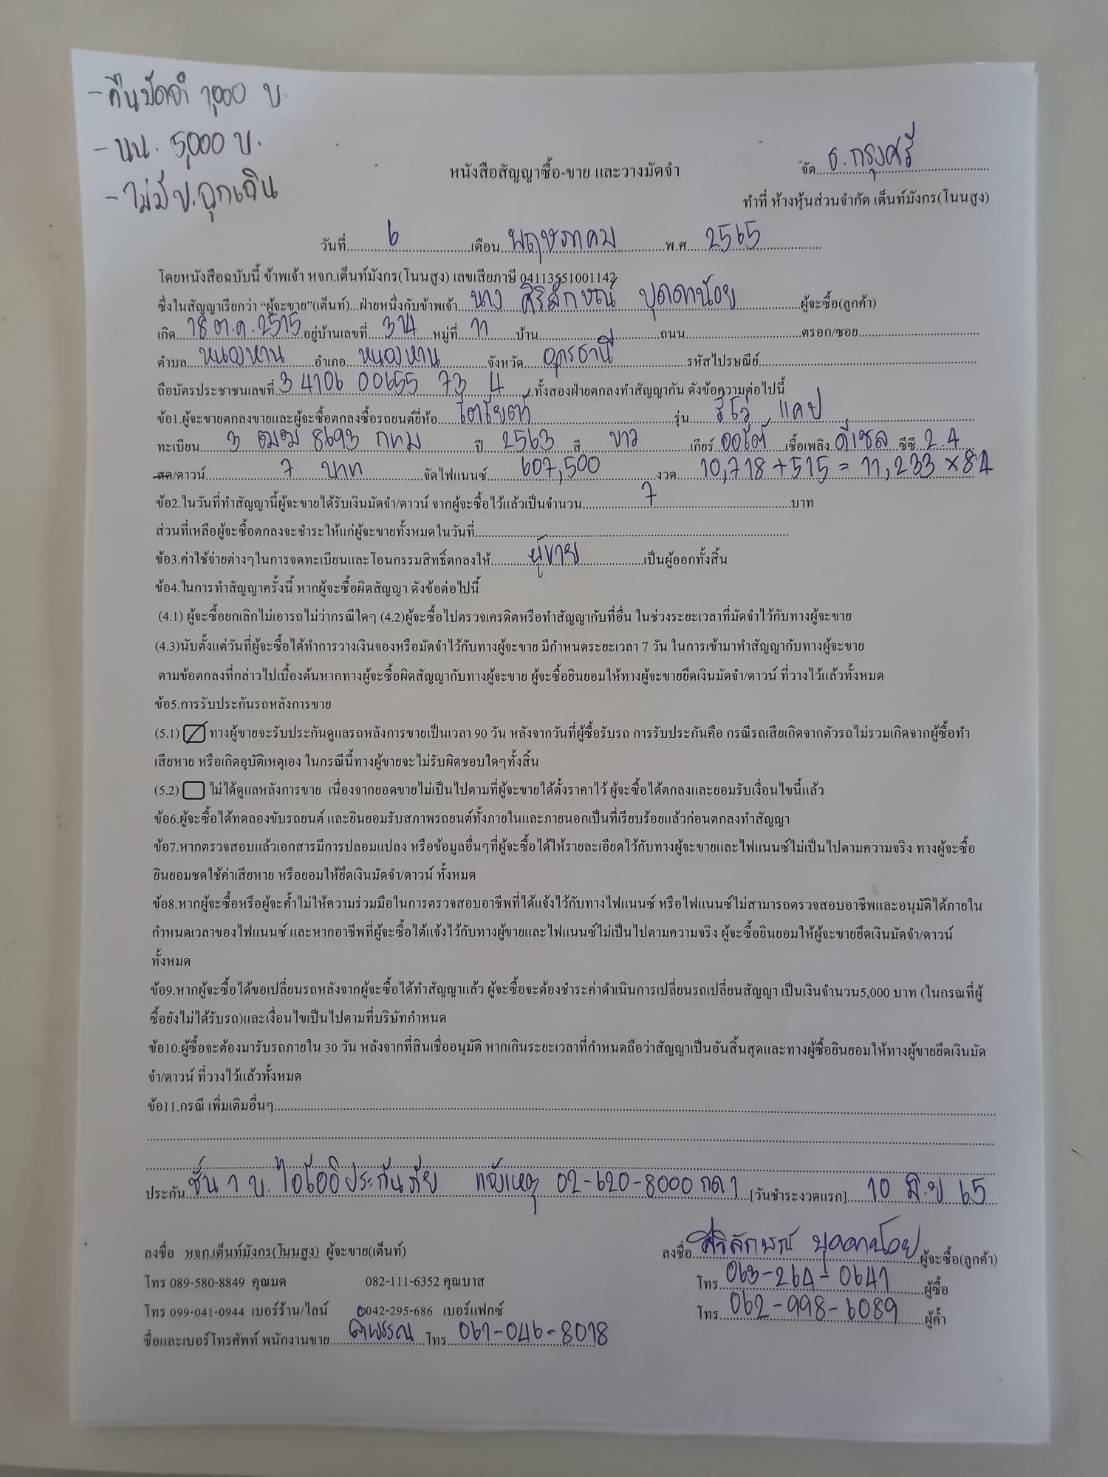 - คืนมัดจำ 1,000 บ.
- นน. 5,000 บ.
- ไม่มี บ.ฉุกเฉิน
หนังสือสัญญาซื้อ-ขาย และวางมัดจำ
จัด ธ.กรุงศรี
ทำที่ ห้างหุ้นส่วนจำกัด เต็นท์มังกร(โนนสูง)
วันที่ 6 เดือน พฤษภาคม พ.ศ 2565
โดยหนังสือฉบับนี้ ข้าพเจ้า หจก.เต็นท์มังกร(โนนสูง) เลขเสียภาษี 04113551001142
ซึ่งในสัญญาเรียกว่า "ผู้จะขาย"(เต็นท์)...ฝ่ายหนึ่งกับข้าพเจ้า นาง ศิริลักษณ์ บุดดาน้อย ผู้จะซื้อ(ลูกค้า)
เกิด 18 ต.ค. 2515 อยู่บ้านเลขที่ 314 หมู่ที่ 11 บ้าน ถนน ตรอก/ซอย
ตำบล หนองหาน อำเภอ หนองหาน จังหวัด อุดรธานี รหัสไปรษณีย์
ถือบัตรประชาชนเลขที่ 3 4106 00655 73 4 ทั้งสองฝ่ายตกลงทำสัญญากัน ดังข้อความต่อไปนี้
ข้อ1.ผู้จะขายตกลงขายและผู้จะซื้อตกลงซื้อรถยนต์ยี่ห้อ โตโยต้า รุ่น รีโว่ แคป
ทะเบียน 3 ฒฒ 8693 กทม ปี 2563 สี ขาว เกียร์ ออโต้ เชื้อเพลิง ดีเซล ซีซี 2.4
สด/ดาวน์ 7 บาท จัดไฟแนนซ์ 607,500 งวด 10,718 + 515 = 11,233 × 84
ข้อ2.ในวันที่ทำสัญญานี้ผู้จะขายได้รับเงินมัดจำ/ดาวน์ จากผู้จะซื้อไว้แล้วเป็นจำนวน 7 บาท
ส่วนที่เหลือผู้จะซื้อตกลงจะชำระให้แก่ผู้จะขายทั้งหมดในวันที่
ข้อ3.ค่าใช้จ่ายต่างๆในการจดทะเบียนและโอนกรรมสิทธิ์ตกลงให้ ผู้ขาย เป็นผู้ออกทั้งสิ้น
ข้อ4.ในการทำสัญญาครั้งนี้ หากผู้จะซื้อผิดสัญญา ดังข้อต่อไปนี้
(4.1) ผู้จะซื้อยกเลิกไม่เอารถไม่ว่ากรณีใดๆ (4.2)ผู้จะซื้อไปตรวจเครดิตหรือทำสัญญากับที่อื่น ในช่วงระยะเวลาที่มัดจำไว้กับทางผู้จะขาย
(4.3)นับตั้งแต่วันที่ผู้จะซื้อได้ทำการวางเงินจองหรือมัดจำไว้กับทางผู้จะขาย มีกำหนดระยะเวลา 7 วัน ในการเข้ามาทำสัญญากับทางผู้จะขาย
ตามข้อตกลงที่กล่าวไปเบื้องต้นหากทางผู้จะซื้อผิดสัญญากับทางผู้จะขาย ผู้จะซื้อยินยอมให้ทางผู้จะขายยึดเงินมัดจำ/ดาวน์ ที่วางไว้แล้วทั้งหมด
ข้อ5.การรับประกันรถหลังการขาย
(5.1) ทางผู้ขายจะรับประกันดูแลรถหลังการขายเป็นเวลา 90 วัน หลังจากวันที่ผู้ซื้อรับรถ การรับประกันคือ กรณีรถเสียเกิดจากตัวรถไม่รวมเกิดจากผู้ซื้อทำ
เสียหาย หรือเกิดอุบัติเหตุเอง ในกรณีนี้ทางผู้ขายจะไม่รับผิดชอบใดๆทั้งสิ้น
(5.2) ไม่ได้ดูแลหลังการขาย เนื่องจากยอดขายไม่เป็นไปตามที่ผู้จะขายได้ตั้งราคาไว้ ผู้จะซื้อได้ตกลงและยอมรับเงื่อนไขนี้แล้ว
ข้อ6.ผู้จะซื้อได้ทดลองขับรถยนต์ และยินยอมรับสภาพรถยนต์ทั้งภายในและภายนอกเป็นที่เรียบร้อยแล้วก่อนตกลงทำสัญญา
ข้อ7.หากตรวจสอบแล้วเอกสารมีการปลอมแปลง หรือข้อมูลอื่นๆที่ผู้จะซื้อได้ให้รายละเอียดไว้กับทางผู้จะขายและไฟแนนซ์ไม่เป็นไปตามความจริง ทางผู้จะซื้อ
ยินยอมชดใช้ค่าเสียหาย หรือยอมให้ยึดเงินมัดจำ/ดาวน์ ทั้งหมด
ข้อ8.หากผู้จะซื้อหรือผู้จะค้ำไม่ให้ความร่วมมือในการตรวจสอบอาชีพที่ได้แจ้งไว้กับทางไฟแนนซ์ หรือไฟแนนซ์ไม่สามารถตรวจสอบอาชีพและอนุมัติได้ภายใน
กำหนดเวลาของไฟแนนซ์ และหากอาชีพที่ผู้จะซื้อได้แจ้งไว้กับทางผู้ขายและไฟแนนซ์ไม่เป็นไปตามความจริง ผู้จะซื้อยินยอมให้ผู้จะขายยึดเงินมัดจำ/ดาวน์
ทั้งหมด
ข้อ9.หากผู้จะซื้อได้ขอเปลี่ยนรถหลังจากผู้จะซื้อได้ทำสัญญาแล้ว ผู้จะซื้อจะต้องชำระค่าดำเนินการเปลี่ยนรถเปลี่ยนสัญญา เป็นเงินจำนวน5,000 บาท (ในกรณที่ผู้
ซื้อยังไม่ได้รับรถ)และเงื่อนไขเป็นไปตามที่บริษัทกำหนด
ข้อ10.ผู้ซื้อจะต้องมารับรถภายใน 30 วัน หลังจากที่สินเชื่ออนุมัติ หากเกินระยะเวลาที่กำหนดถือว่าสัญญาเป็นอันสิ้นสุดและทางผู้ซื้อยินยอมให้ทางผู้ขายยึดเงินมัด
จำ/ดาวน์ ที่วางไว้แล้วทั้งหมด
ข้อ11.กรณี เพิ่มเติมอื่นๆ
ประกัน ชั้น 1 บ. ไอโออิประกันภัย แจ้งเหตุ 02-620-8000 กด 1 [วันชำระงวดแรก] 10 มิ.ย 65
ลงชื่อ หจก.เต็นท์มังกร(โนนสูง) ผู้จะขาย(เต็นท์)
ลงชื่อ ศิริลักษณ์ บุดดาน้อย ผู้จะซื้อ(ลูกค้า)
โทร 089-580-8849 คุณมด 082-111-6352 คุณบาส
โทร 063-264-0641 ผู้ซื้อ
โทร 099-041-0944 เบอร์ร้าน/ไลน์ 0042-295-686 เบอร์แฟกซ์
โทร 062-998-6089 ผู้ค้ำ
ชื่อและเบอร์โทรศัพท์ พนักงานขาย โทร 061-046-8018